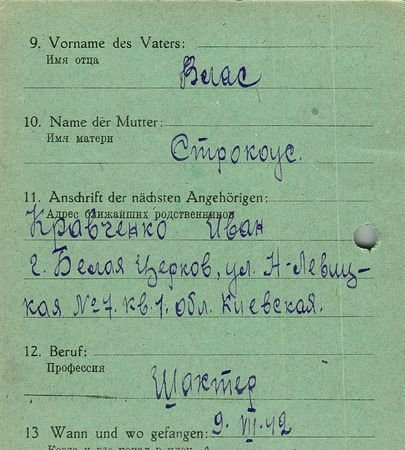 9. Vorname des Vaters:
Имя отца
Влас
10. Name der Mutter:
Имя матери
Строкоус.
11. Anschrift der nächsten Angehörigen:
Адрес ближайших родственников
Кравченко Иван
г. Белая Церков, ул. Н-Левиц-
кая №7. кв. 1. обл. Киевская.
12. Beruf:
Профессия
Шахтер
9. VII. 42
13 Wann und wo gefangen: